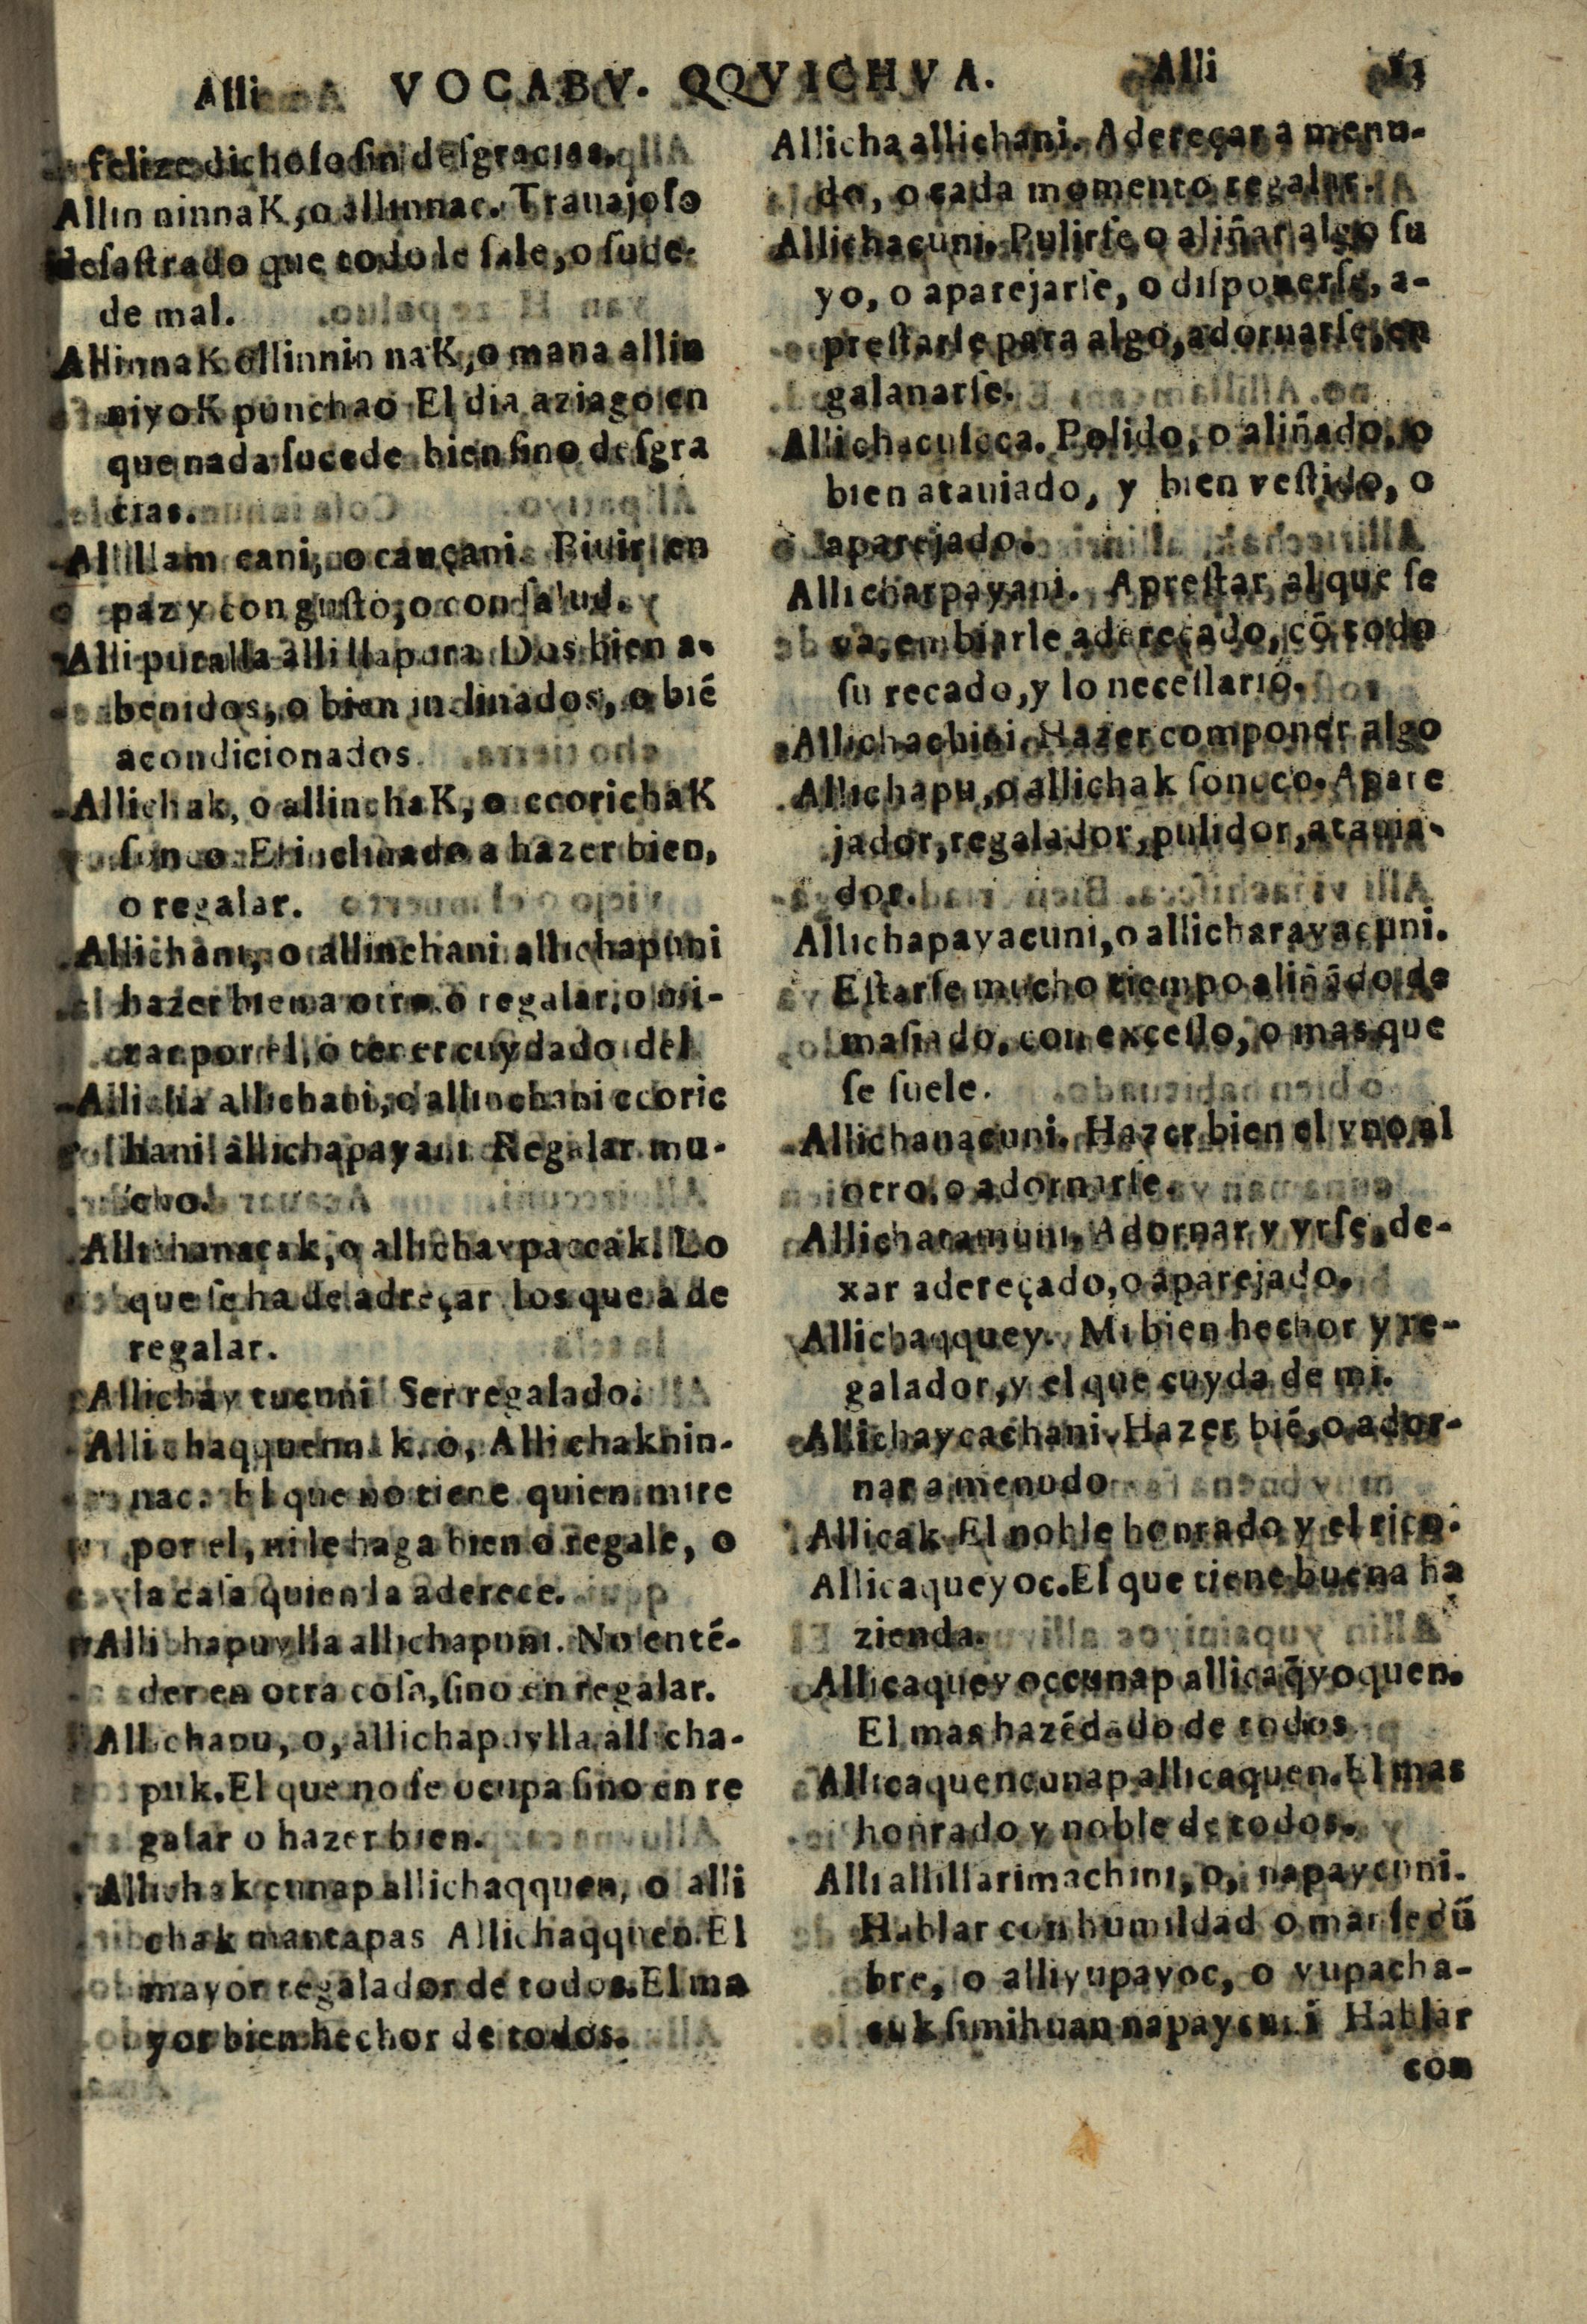 Alli VOCABV. QQVICHVA. Alli
felize dichoso sin desgracias.
Allin ninnaK, o allinnac. Trauajoso
desastrado que todo le sale, o suce-
de mal.
AllinnaK ollinnin naK, o mana allin
niyoK punchao El dia aziago en
que nada sucede bien sino desgra
cias.
Allillam cani, o cauçani. Biuir en
paz y con gusto, o con salud.
Alli puralla alli llapura. Dos bien a-
benidos, o bien inclinados, o bié
acondicionados.
Allichak, o allinchaK, o ccorichaK
El inclinado a hazer bien,
o regalar.
Allichani, o allinchani allichapuni
hazer bien a otro. o regalar, o mi-
rar por el, o tener cuydado del
allichani, o allinchani ccoric
hani allichapayani Regalar mu-
cho.
Allichanaçak, o allichaypaccak. Lo
que se ha de adreçar los que à de
regalar.
Allichay tucuni Ser regalado.
Allichaqquenna k. o, Allichaknin-
nac. El que no tiene quien mire
por el, ni le haga bien o regale, o
la casa quien la aderece.
Allichapuylla allichapuni. No enté-
der en otra cosa, sino en regalar.
Allichapu, o, allichapuylla allicha-
puk. El que no se ocupa sino en re
galar o hazer bien.
Allichak cunap allichaqquen, o alli
chak mantapas Allichaqquen. El
mayor regalador de todos. El ma
yor bien hechor de todos.
Allicha allichani. Adereçar a menu-
do, o cada momento regalar.
Allichacuni. Pulirse o aliñar algo su
yo, o aparejarse, o disponerse, a-
prestarse para algo, adornarse, en
galanarse.
Allichacuscca. Polido, o aliñado, o
bien atauiado, y bien vestido, o
aparejado.
Allicharpayani. Aprestar al que se
va, embiarle adereçado, cō todo
su recado, y lo necessario.
Allichachini. Hazer componer algo
Allichapu, o allichak soncco. Apare
jador, regalador, pulidor, atauia-
dor.
Allichapayacuni, o allicharayacuni.
Estarse mucho tiempo aliñādo de
masiado, con excesso, o mas que
se suele.
Allichanacuni. Hazer bien el vno al
otro, o adornarse.
Allichatamuni, Adornar y yrse, de-
xar adereçado, o aparejado.
Allichaqquey. Mi bien hechor y re-
galador, y el que cuyda de mi.
Allichaycachani. Hazer bié, o ador-
nar a menudo
Allicak El noble honrado y el rico.
Allicaqueyoc. El que tiene buena ha
zienda.
Allicaqueyoccunap allicaq̃yoquen.
El mas hazédado de todos
Allicaquencunap allicaquen. El mas
honrado y noble de todos.
Alli allillarimachini, o, napaycuni.
Hablar con humildad o mansedū
bre, o alliyupayoc, o yupacha-
cuk simihuan napaycuni Hablar
con